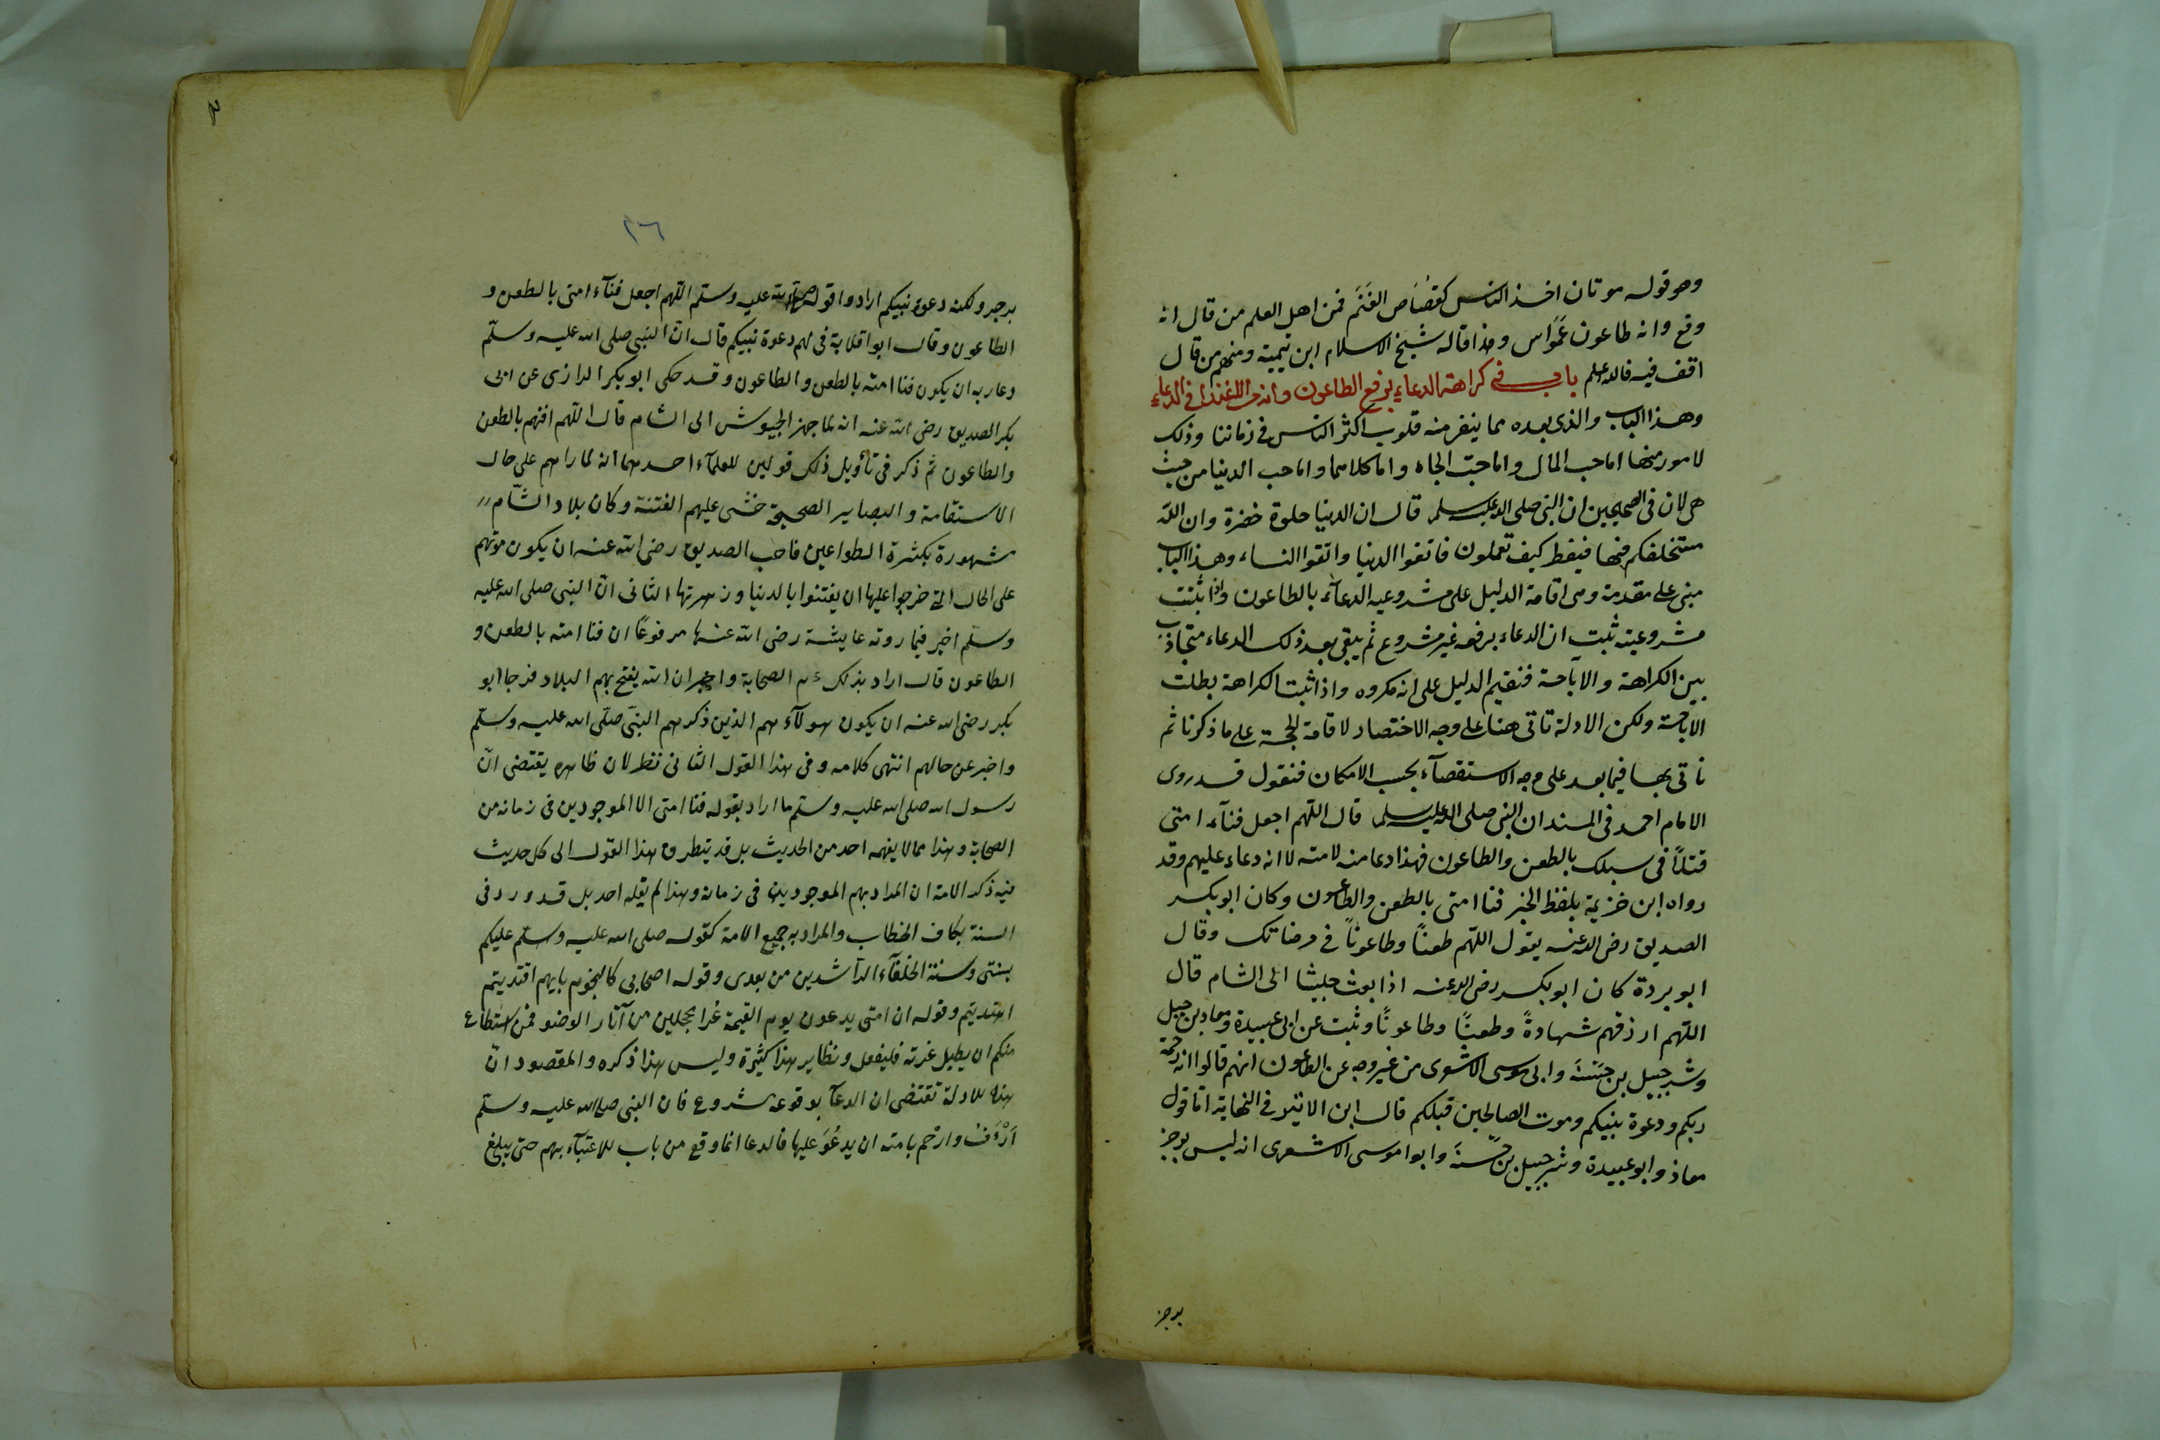 وهو قوله موتان اخذ الناس كقصاص الغنم فمن اهل العلم من قال انه
وقع وانه طاعون عمواس وهذا قاله شيخ الاسلام ابن تيمية ومنهم من قال
اقف فيه فالله اعلم باب في كراهة الدعاء برفع الطاعون وانه من الدعاء
وهذا الباب والذي بعده مما ينفر منه قلوب اكثر الناس في زماننا وذلك
لامور منها اما حب المال واما حب الجاه واما كلاهما واما حب الدنيا من حيث
هي لان في الصحيحين ان النبي صلى الله عليه وسلم قال ان الدنيا حلوة خضرة وان الله
مستخلفكم فيها فينظر كيف تعملون فاتقوا الدنيا واتقوا النساء وهذا الباب
مبني على مقدمة وهي اقامة الدليل على مشروعيه الدعاء بالطاعون واذا ثبتت
مشروعيته ثبت ان الدعاء برفعه غير مشروع ثم يبقى بعد ذلك الدعاء متجاذب
بين الكراهة والاباحة فنقيم الدليل على انه مكروه واذا ثبت الكراهة بطلت
الاباحة ولكن الادلة تاتي هنا على وجه الاختصار لاقامة الحجة على ما ذكرنا ثم
ناتي بها فيما بعد على وجه الاستقصاء بحسب الامكان فنقول قد روى
الامام احمد في المسند ان النبي صلى الله عليه وسلم قال اللهم اجعل فناء امتي
قتلا في سبيلك بالطعن والطاعون فهذا دعا منه لامته لا انه دعاء عليهم وقد
رواه ابن خزيمة بلفظ الخبر فنا امتى بالطعن والطاعون وكان ابو بكر
الصديق رضى الله عنه يقول اللهم طعنا وطاعونا في مرضاتك وقال
ابو بردة كان ابو بكر رضى الله عنه اذا بعث جيشا الى الشام قال
اللهم ارزقهم شهادة وطعنا وطاعونا وثبت عن ابي عبيدة ومعاذ بن جبل
وشرحبيل بن حسنة وابي موسى الاشعري من غير وجه عن الطاعون انهم قالوا انه رحمة
ربكم ودعوة نبيكم وموت الصالحين قبلكم قال ابن الاثير في النهاية اما قول
معاذ وابو عبيدة وشرحبيل بن حسنة وابو موسى الاشعرى انه ليس برجز
برجز
٢٦
برجز ولكنه دعوة نبيكم ارادوا قوله صلى الله عليه وسلم اللهم اجعل فناء امتى بالطعن و
الطاعون وقال ابو قلابة في فهم دعوة نبيكم قال ان النبي صلى الله عليه وسلم
دعا ربه ان يكون فنا امته بالطعن والطاعون وقد حكى ابو بكر الرازى عن ابى
بكر الصديق رضى الله عنه انه لما جهز الجيوش الى الشام قال اللهم افنهم بالطعن
والطاعون ثم ذكر في تأويل ذلك قولين للعلماء احدهما انه لما راهم على حال
الاستقامة والبصاير الصحيحة خشى عليهم الفتنة وكان بلاد الشام
مشهورة بكثرة الطواعين فاحب الصديق رضى الله عنه ان يكون موتهم
على الحال التي خرجوا عليها ان يفتنوا بالدنيا وزهرتها الثانى ان النبى صلى الله عليه
وسلم اخبر فيما روته عايشة رضى الله عنها مرفوعا ان فنا امته بالطعن و
الطاعون قال اراد بذلك الصحابة واخبر ان الله يفتح بهم البلاد فرجا ابو
بكر رضى الله عنه ان يكون هولاء هم الذين ذكرهم النبى صلى الله عليه وسلم
واخبر عن حالهم انتهى كلامه وفى هذا القول الثانى نظر لان ظاهره يقتضى ان
رسول الله صلى الله عليه وسلم ما اراد بقوله فنا امتى الا الموجودين فى زمانه من
الصحابة وهذا مما لا يفهمه احد من الحديث بل قد يتطرق هذا القول الى كل حديث
فيه ذكر الامة ان المراد بهم الموجودين فى زمانه وهذا لم يقله احد بل قد ورد فى
السنة بكاف الخطاب والمراد به جميع الامة كقوله صلى الله عليه وسلم عليكم
بسنتى وسنة الخلفاء الراشدين من بعدى وقوله اصحابي كالنجوم بايهم اقتديتم
اهتديتم وقوله ان امتى يدعون يوم القيمة غرا محجلين من آثار الوضوء فمن استطاع
منكم ان يطيل غرته فليفعل ونظاير هذا كثيرة وليس هذا ذكره والمقصود ان
هذه الادلة تقتضى ان الدعاء بوقوعه مشروع فان النبى صلى الله عليه وسلم
ارأف وارحم بامته ان يدعو عليها فالدعا انما وقع من باب الاعتناء بهم حتى يبلغ